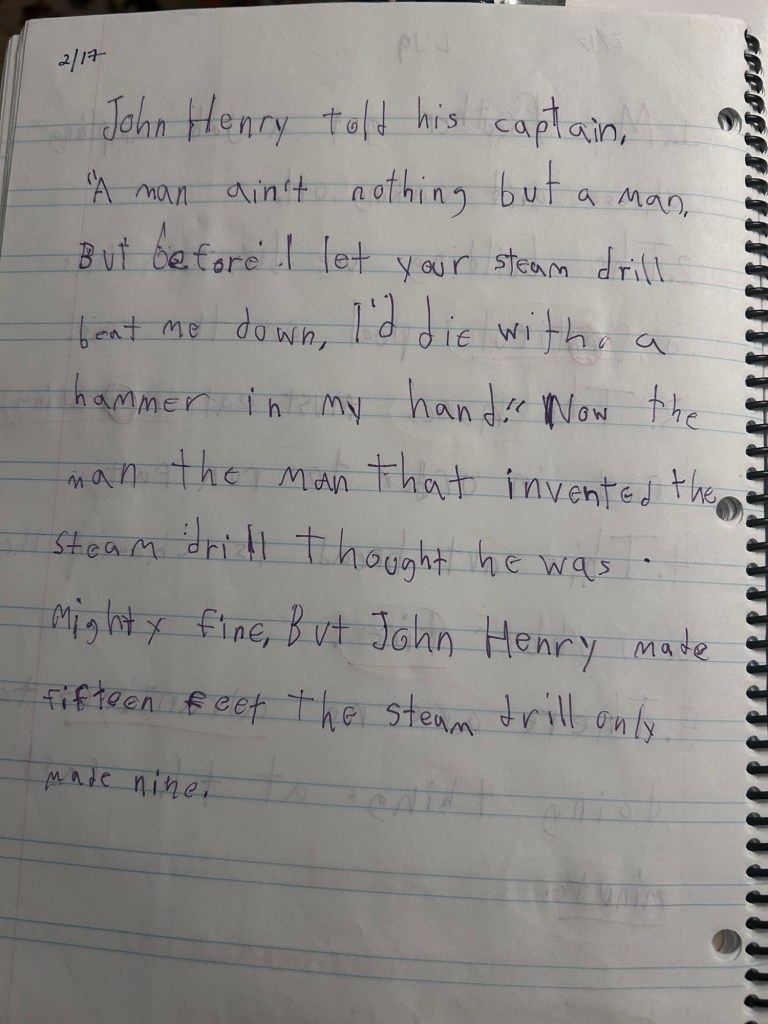 2/17
John Henry told his captain,
"A man ain't nothing but a man,
But before I let your steam drill
beat me down, I'd die with a
hammer in my hand!" Now the
man the man that invented the
steam drill thought he was
mighty fine, But John Henry made
fifteen feet the steam drill only
made nine.